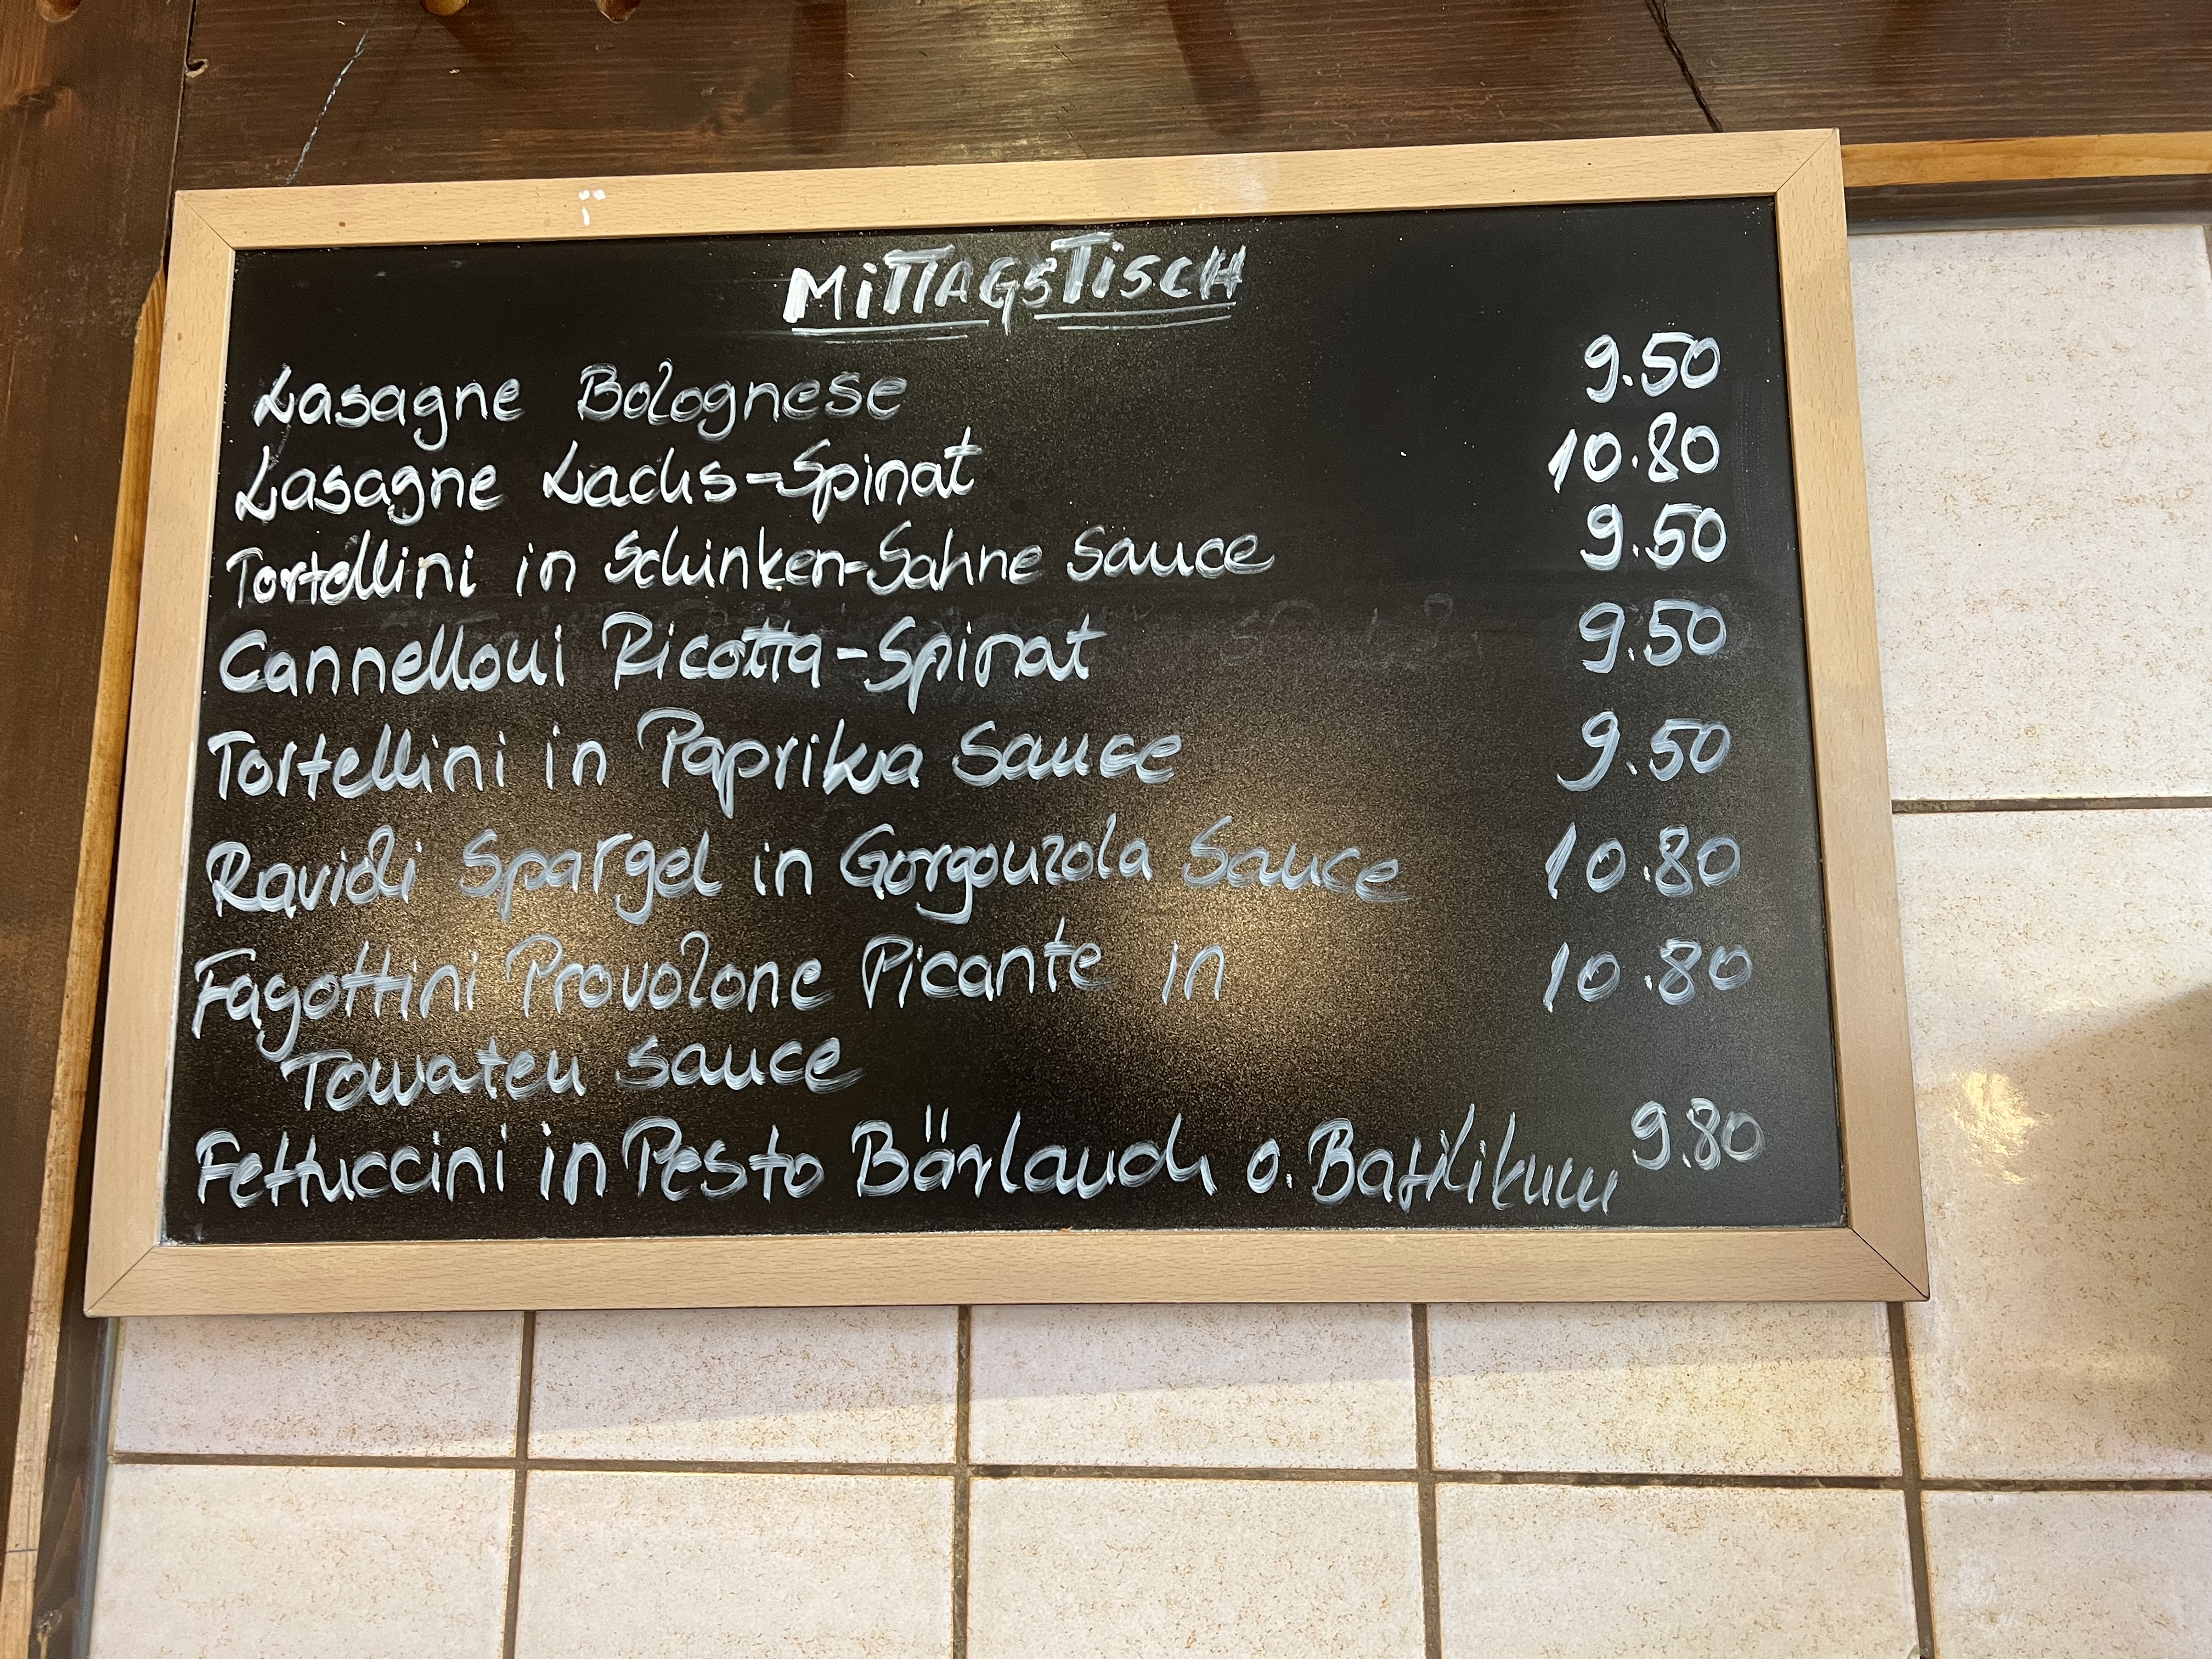 MITTAGSTISCH
Lasagne Bolognese 9.50
Lasagne Lachs-Spinat 10.80
Tortellini in Schinken-Sahne Sauce 9.50
Cannelloni Ricotta-Spinat 9.50
Tortellini in Paprika Sauce 9.50
Ravioli Spargel in Gorgonzola Sauce 10.80
Fagottini Provolone Picante in 10.80
Tomaten Sauce
Fettuccini in Pesto Bärlauch o. Basilikum 9.80